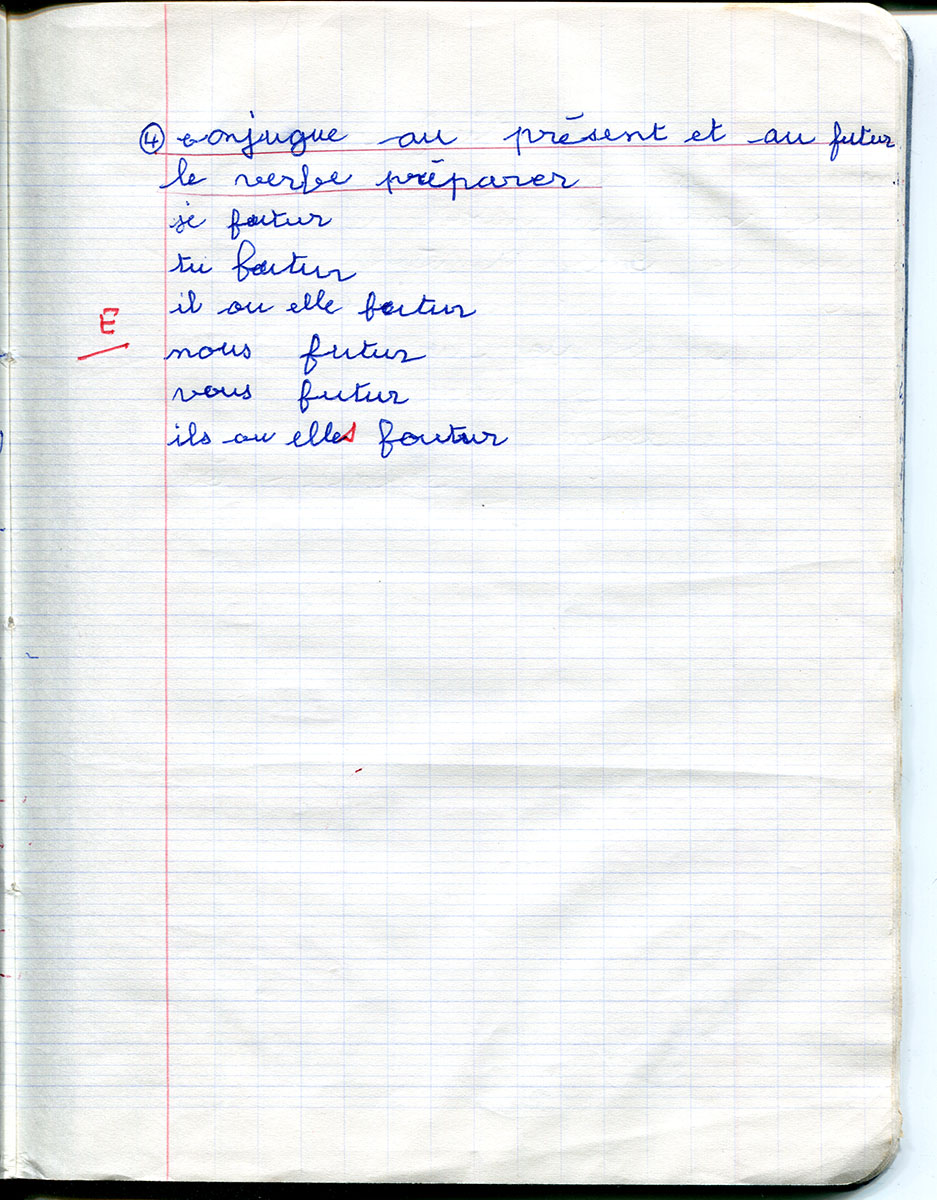 ④ conjugue au présent et au futur
le verbe préparer
je foutur
tu foutur
il ou elle foutur
E
nous futur
vous futur
ils ou elles foutur